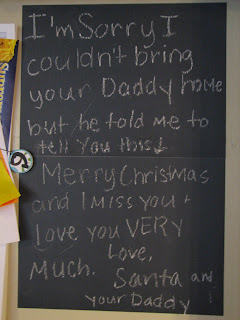 I'm Sorry I
couldn't bring
your Daddy home
but he told me to
tell You this!
Merry Christmas
and I miss you +
Love you VERY
Much. Love,
Santa and
your Daddy!